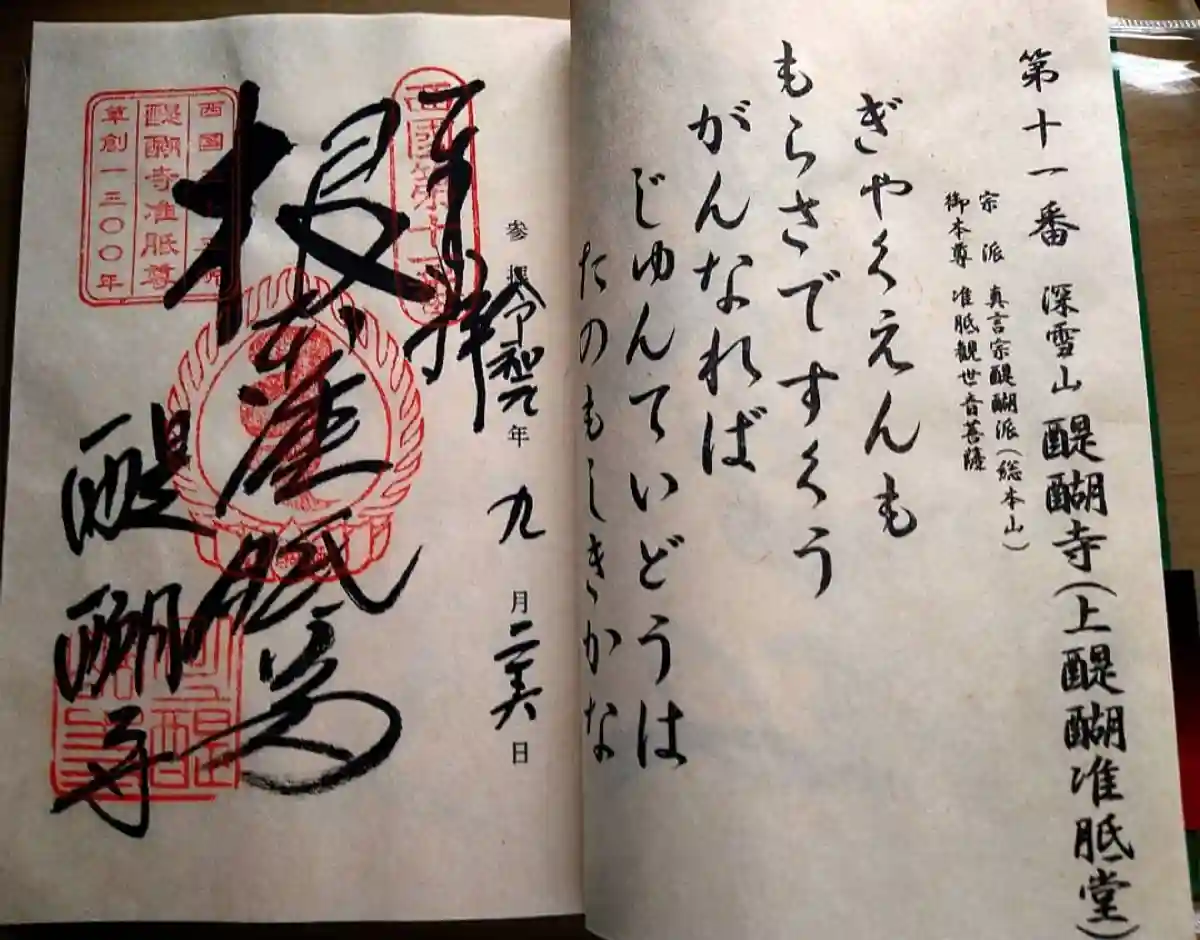 第十一番 深雪山 醍醐寺(上醍醐准胝堂)
宗派 真言宗醍醐派(総本山)
御本尊 准胝観世音菩薩
ぎやくえんも
もらさですくう
がんなれば
じゅんていどうは
たのもしきかな
奉拝
西国第十一番
参拝令和元年 九月二十六日
醍醐寺
醍醐寺准胝尊
草創一三〇〇年